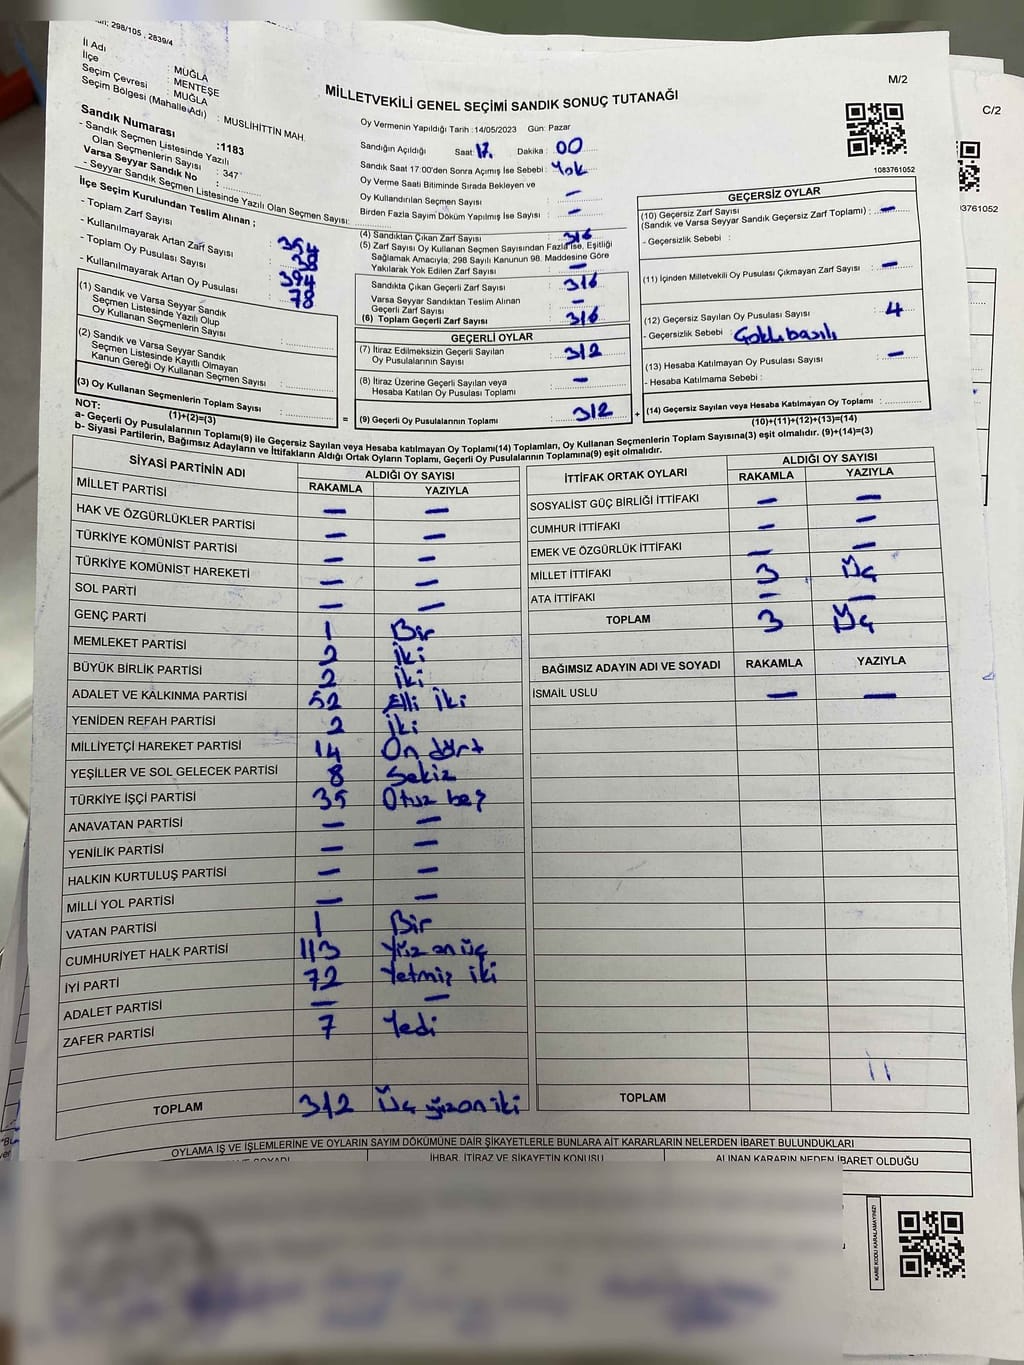 298/105 , 2839/4
İl Adı : MUĞLA
İlçe : MENTEŞE
Seçim Çevresi : MUĞLA
Seçim Bölgesi (Mahalle Adı) : MUSLİHİTTİN MAH.
Sandık Numarası :1183
- Sandık Seçmen Listesinde Yazılı
Olan Seçmenlerin Sayısı : 347
Varsa Seyyar Sandık No :
- Seyyar Sandık Seçmen Listesinde Yazılı Olan Seçmen Sayısı:
İlçe Seçim Kurulundan Teslim Alınan ;
- Toplam Zarf Sayısı : 354
- Kullanılmayarak Artan Zarf Sayısı : 38
- Toplam Oy Pusulası Sayısı : 394
- Kullanılmayarak Artan Oy Pusulası : 78
(1) Sandık ve Varsa Seyyar Sandık
Seçmen Listesinde Yazılı Olup
Oy Kullanan Seçmenlerin Sayısı :
(2) Sandık ve Varsa Seyyar Sandık
Seçmen Listesinde Kayıtlı Olmayan
Kanun Gereği Oy Kullanan Seçmen Sayısı :
(3) Oy Kullanan Seçmenlerin Toplam Sayısı :
(1)+(2)=(3)
M/2
MİLLETVEKİLİ GENEL SEÇİMİ SANDIK SONUÇ TUTANAĞI
Oy Vermenin Yapıldığı Tarih :14/05/2023 Gün: Pazar
Sandığın Açıldığı Saat : 17. Dakika : 00
Sandık Saat 17:00'den Sonra Açımış İse Sebebi : Yok
Oy Verme Saati Bitiminde Sırada Bekleyen ve
Oy Kullandırılan Seçmen Sayısı : –
Birden Fazla Sayım Döküm Yapılmış İse Sayısı : –
(4) Sandıktan Çıkan Zarf Sayısı : 316
(5) Zarf Sayısı Oy Kullanan Seçmen Sayısından Fazla İse, Eşitliği
Sağlamak Amacıyla; 298 Sayılı Kanunun 98. Maddesine Göre
Yakılarak Yok Edilen Zarf Sayısı : –
Sandıkta Çıkan Geçerli Zarf Sayısı : 316
Varsa Seyyar Sandıktan Teslim Alınan
Geçerli Zarf Sayısı : –
(6) Toplam Geçerli Zarf Sayısı : 316
GEÇERLİ OYLAR
(7) İtiraz Edilmeksizin Geçerli Sayılan
Oy Pusulalarının Sayısı : 312
(8) İtiraz Üzerine Geçerli Sayılan veya
Hesaba Katılan Oy Pusulası Toplamı : –
= (9) Geçerli Oy Pusulası Toplamı : 312 +
1083761052
GEÇERSİZ OYLAR
(10) Geçersiz Zarf Sayısı
(Sandık ve Varsa Seyyar Sandık Geçersiz Zarf Toplamı) : –
- Geçersizlik Sebebi :
(11) İçinden Milletvekili Oy Pusulası Çıkmayan Zarf Sayısı : –
(12) Geçersiz Sayılan Oy Pusulası Sayısı : 4
- Geçersizlik Sebebi : Çoklu basılı
(13) Hesaba Katılmayan Oy Pusulası Sayısı : –
- Hesaba Katılmama Sebebi :
(14) Geçersiz Sayılan veya Hesaba Katılmayan Oy Toplamı :
(10)+(11)+(12)+(13)=(14)
C/2
3761052
NOT:
a- Geçerli Oy Pusulalarının Toplamı(9) ile Geçersiz Sayılan veya Hesaba katılmayan Oy Toplamı(14) Toplamları, Oy Kullanan Seçmenlerin Toplam Sayısına(3) eşit olmalıdır. (9)+(14)=(3)
b- Siyasi Partilerin, Bağımsız Adayların ve İttifakların Aldığı Ortak Oyların Toplamı, Geçerli Oy Pusulalarının Toplamına(9) eşit olmalıdır.
SİYASİ PARTİNİN ADI ALDIĞI OY SAYISI
RAKAMLA YAZIYLA
MİLLET PARTİSİ – –
HAK VE ÖZGÜRLÜKLER PARTİSİ – –
TÜRKİYE KOMÜNİST PARTİSİ – –
TÜRKİYE KOMÜNİST HAREKETİ – –
SOL PARTİ – –
GENÇ PARTİ 1 Bir
MEMLEKET PARTİSİ 2 İki
BÜYÜK BİRLİK PARTİSİ 2 İki
ADALET VE KALKINMA PARTİSİ 52 Elli İki
YENİDEN REFAH PARTİSİ 2 İki
MİLLİYETÇİ HAREKET PARTİSİ 14 On dört
YEŞİLLER VE SOL GELECEK PARTİSİ 8 Sekiz
TÜRKİYE İŞÇİ PARTİSİ 35 Otuz beş
ANAVATAN PARTİSİ – –
YENİLİK PARTİSİ – –
HALKIN KURTULUŞ PARTİSİ – –
MİLLİ YOL PARTİSİ – –
VATAN PARTİSİ 1 Bir
CUMHURİYET HALK PARTİSİ 113 Yüz on üç
İYİ PARTİ 72 Yetmiş iki
ADALET PARTİSİ – –
ZAFER PARTİSİ 7 Yedi
TOPLAM 312 Üç yüzon iki
İTTİFAK ORTAK OYLARI ALDIĞI OY SAYISI
RAKAMLA YAZIYLA
SOSYALİST GÜÇ BİRLİĞİ İTTİFAKI – –
CUMHUR İTTİFAKI – –
EMEK VE ÖZGÜRLÜK İTTİFAKI – –
MİLLET İTTİFAKI 3 Üç
ATA İTTİFAKI – –
TOPLAM 3 Üç
BAĞIMSIZ ADAYIN ADI VE SOYADI RAKAMLA YAZIYLA
İSMAİL USLU – –
TOPLAM
OYLAMA İŞ VE İŞLEMLERİNE VE OYLARIN SAYIM DÖKÜMÜNE DAİR ŞİKAYETLERLE BUNLARA AİT KARARLARIN NELERDEN İBARET BULUNDUKLARI
İHBAR, İTİRAZ VE ŞİKAYETİN KONUSU ALINAN KARARIN NEDEN İBARET OLDUĞU
KARE KODU KARALAMAYINIZ!